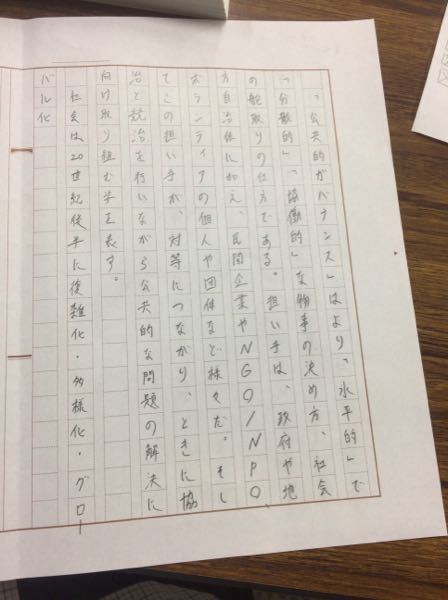 「公共的ガバナンス」はより、「水平的」で
「分散的」、「協働的」な物事の決め方、社会
の舵取りの仕方である。担い手は、政府や地
方自治体に加え、民間企業やNGO/NPO
ボランティアの個人や団体など様々だ。そし
てこの担い手が、対等につながり、ときに協
治と説治を行いながら公共的な問題の解決に
向け取り組む字を表す。
社会は20世紀後半に復雑化・多様化・グロー
バル化